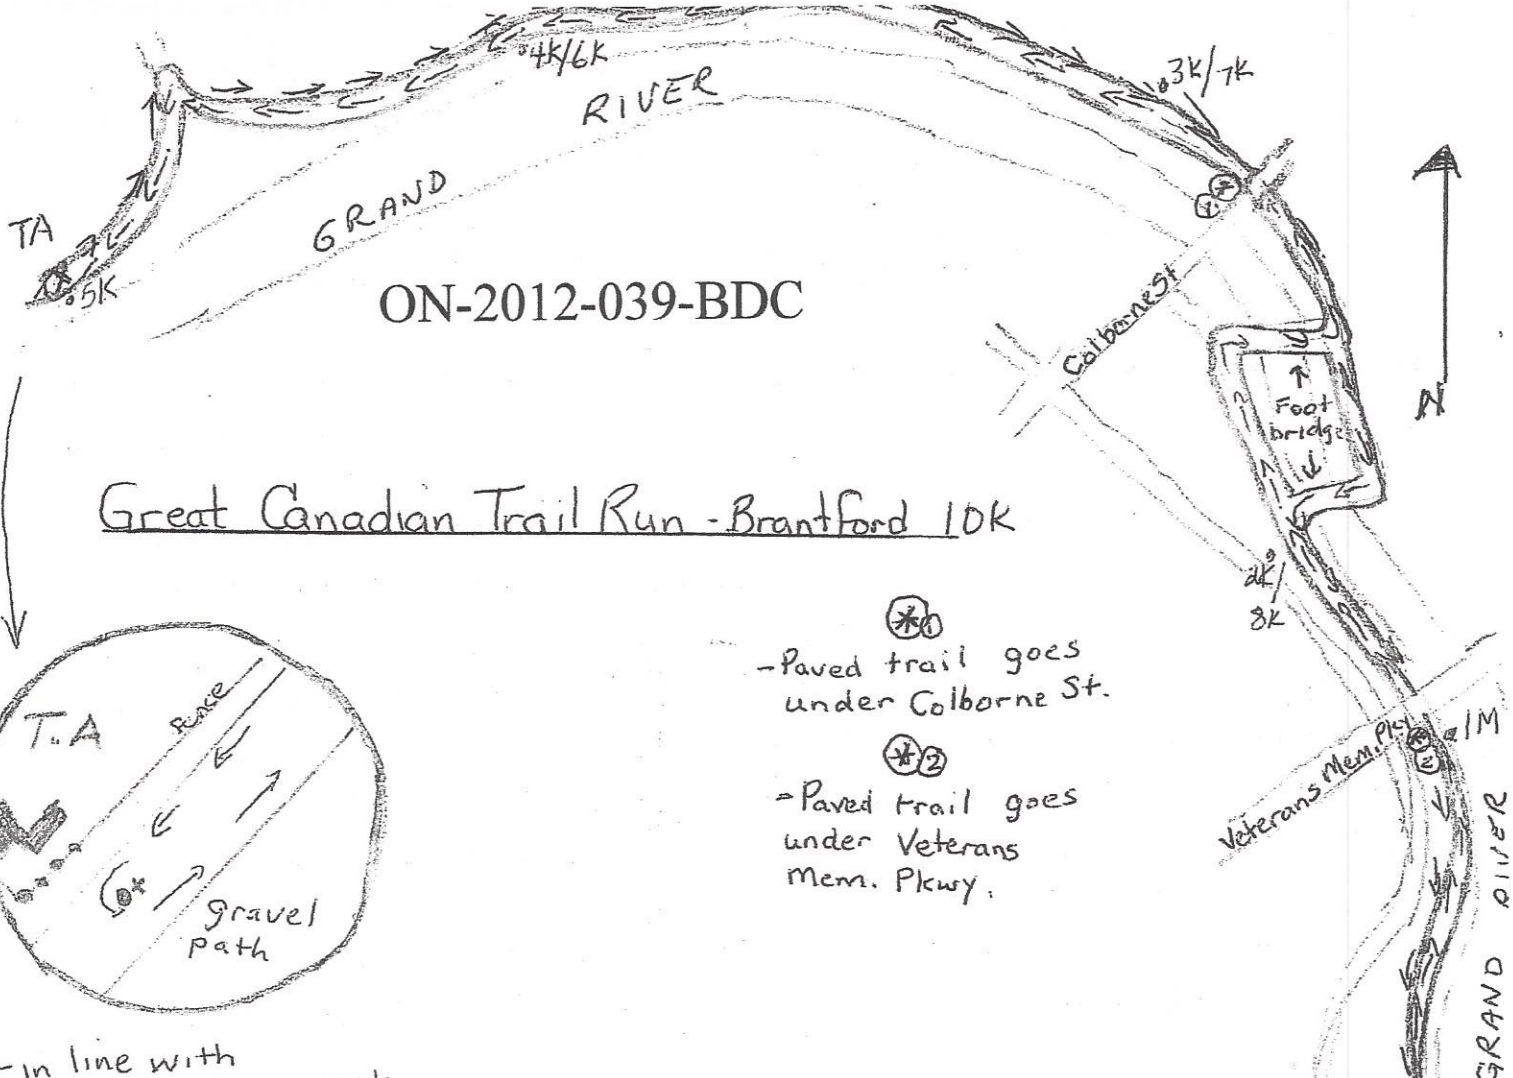 4K/6K
3K/7K
RIVER
GRAND
TA
5K
ON-2012-039-BDC
Colborne St
Foot
bridge
N
Great Canadian Trail Run - Brantford 10K
2K/
8K
1
- Paved trail goes
under Colborne St.
2
- Paved trail goes
under Veterans
Mem. Pkwy.
Veterans Mem. Pky
1M
2
GRAND RIVER
T.A
Fence
gravel
path
- in line with